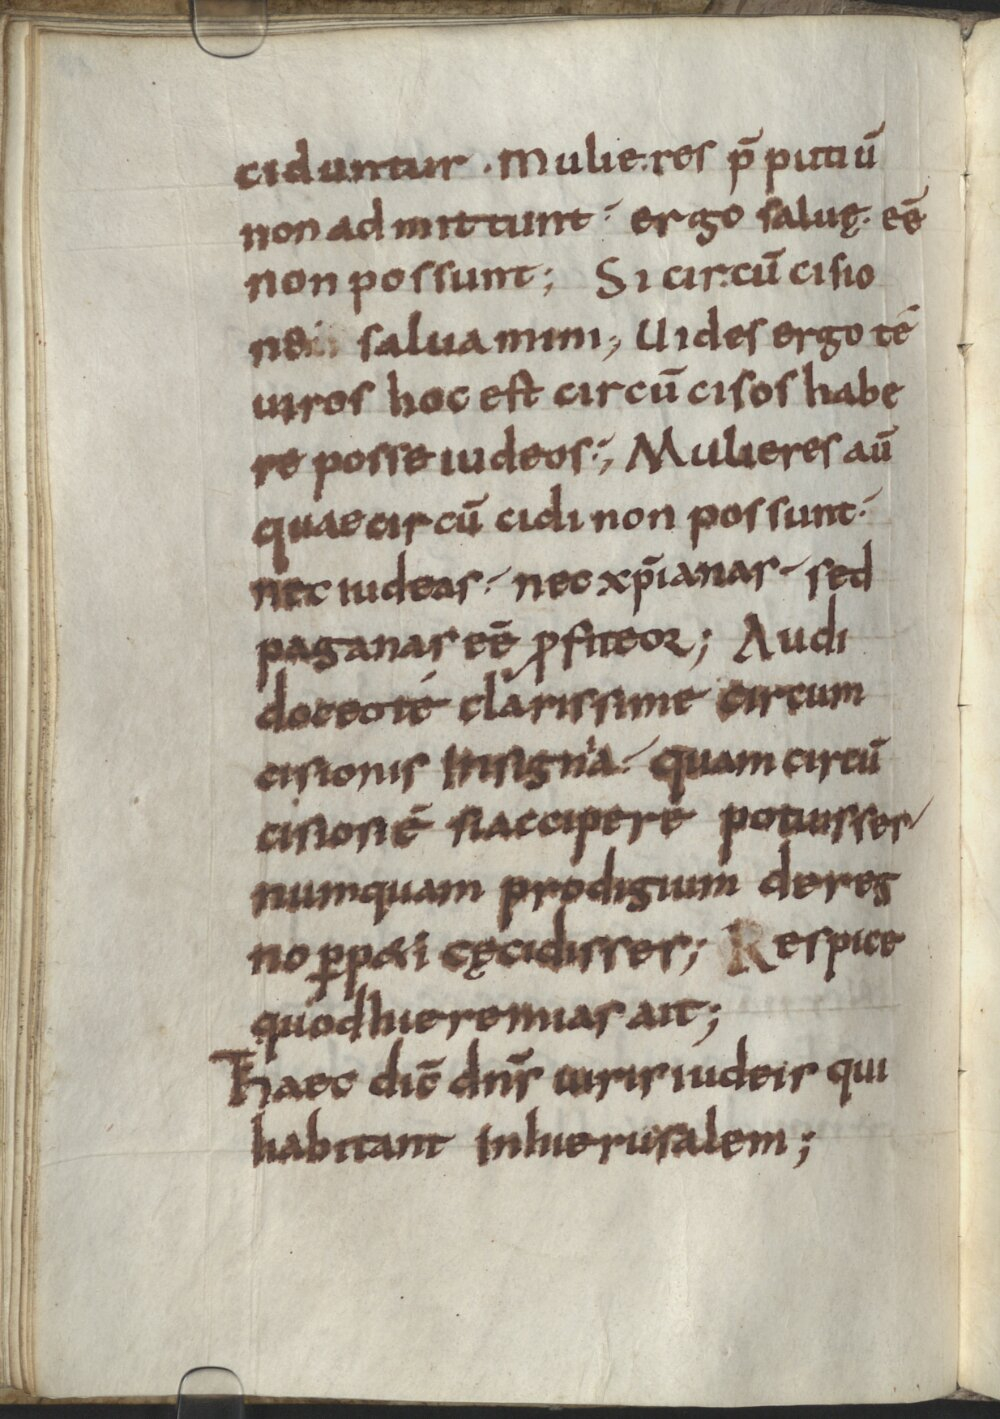 ciduntur · Mulieres p̄putiū
non admittunt · ergo saluę · eē
non possunt; Si circū cisio
ne saluamini; Uides ergo té
uiros hoc est circū cisos habe
re posse iudeos·; Mulieres aū
quae circū cidi non possunt·
nec iudeas · nec xp̄ianas · sed
paganas eē ꝓfiteor; Audi
doceo té clarissime circum
cisionis Insignia · quam circū
cisionē si accipere potuisses
numquam prodigium de reg
no ꝑpeti cęcidisses; Respice
quod hieremias ait;
Haec dic̄ dn̄s uiris iudeis qui
habitant In hierusalem;